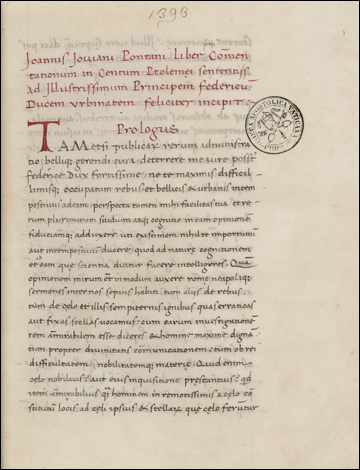 1393
Joannis Joviani Pontani Liber Comen
tationum in Centum Ptolemei sententiis
ad Illustrissimum Principem federicum
Ducem Urbinatem feliciter incipit
BIBLIOTHECA APOSTOLICA VATICANA
Prologus
TAMetsi publicarum rerum administratio
belliq gerendi cura deterrere me iure posset
federice Dux fortissime ne te maximis difficil
limisq occupatum rebus et bellicis et urbanis intem
pestivius adeam perspecta tamen mihi facilitas tua et re
rum plurimarum studium atq cognitio in eam opinionem
fiduciamq adduxere uti existimem nihil te importunum
aut intempestivum ducere quod ad naturae cognitionem
et ad eam quae scientia dicitur facere intelligeres. Qua
opinionem mirum est in modum auxere romae neapoliq
sermones inter nos sepius habiti tum aliis de rebus
tum de celo et illis sempiternis ignibus quas erraticas
aut fixas stellas vocamus cum earum investigationem
rem admirabilem esse diceres et homine maxime dignam
tum propter divinitatis communicationem tum ob rei
difficultatem nobilitatemq materie. Quid enim
celo nobilius aut eius inquisitione prestantius qd
item admirabilius q hominem in remotissimis a celo con
stitutum locis ad celi ipsius et stellarum que celo feruntur